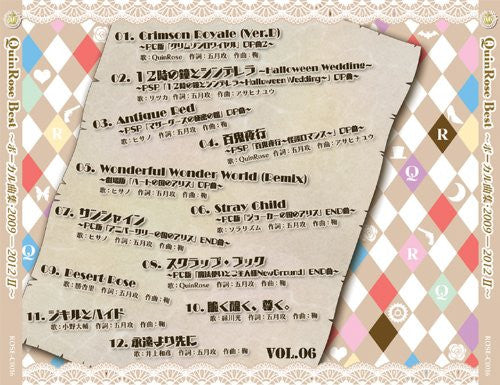 QuinRose Best ～ボーカル曲集2009―2012Ⅱ～
01. Crimson Royale (Ver.B)
～PC版「クリムゾンロワイヤル」OP曲2～
歌：QuinRose 作詞：五月攻 作曲：鞠
02. 12時の鐘とシンデレラ～Halloween Wedding～
～PSP「12時の鐘とシンデレラ～Halloween Wedding～」OP曲～
歌：リツカ 作詞：五月攻 作曲：アサヒナユウ
03. Antique Red
～PSP「マザーグースの秘密の館」OP曲～
歌：ヒサノ 作詞：五月攻 作曲：鞠
04. 百鬼夜行
～PSP「百鬼夜行～怪談ロマンス～」OP曲～
歌：QuinRose 作詞：五月攻 作曲：アサヒナユウ
05. Wonderful Wonder World (Remix)
～劇場版「ハートの国のアリス」OP曲～
歌：ヒサノ 作詞：五月攻 作曲：鞠
06. Stray Child
～PC版「ジョーカーの国のアリス」END曲～
歌：ソラリズム 作詞：五月攻 作曲：鞠
07. サンシャイン
～PC版「アニバーサリーの国のアリス」END曲～
歌：ヒサノ 作詞：五月攻 作曲：鞠
08. スクラップ・ブック
～PC版「魔法使いとご主人様NewGround」END曲～
歌：QuinRose 作詞：五月攻 作曲：鞠
09. Desert Rose
歌：勝杏里 作詞：五月攻 作曲：鞠
10. 脆く儚く。尊く。
歌：緑川光 作詞：五月攻 作曲：鞠
11. ジキルとハイド
歌：小野大輔 作詞：五月攻 作曲：鞠
12. 永遠より先に
歌：井上和彦 作詞：五月攻 作曲：鞠
VOL.06
R
Q
R
Q
QuinRose Best ～ボーカル曲集2009―2012Ⅱ～